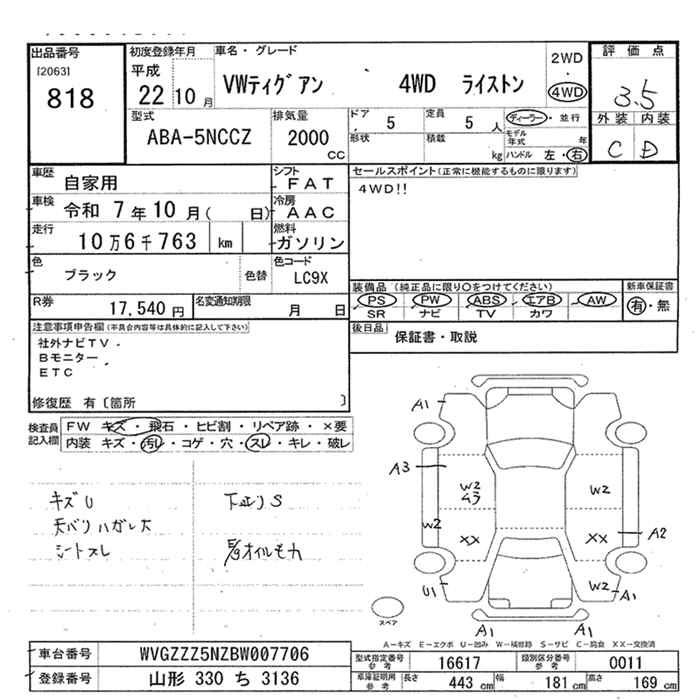 出品番号
[2063]
818
初度登録年月
平成
22 10月
車名・グレード
VWティグアン 4WD ライストン
2WD
・
4WD
評価点
3.5
外装 内装
C D
型式
ABA-5NCCZ
排気量
2000
CC
ドア 5
定員 5 人
形状
積載 kg
ディーラー・並行
モデル年式 年
ハンドル 左・右
車歴
自家用
シフト
FAT
車検
令和 7年 10月( 日)
冷房
AAC
走行
10万6千763 km
燃料
ガソリン
色
ブラック
色替
色コード
LC9X
セールスポイント(正常に機能するものに限ります)
4WD!!
装備品 (純正品に限り〇をつけてください)
新車保証書
PS PW ABS エアB AW
有・無
SR ナビ TV カワ
R券
17,540 円
名変通知期限
月 日
後日品
保証書・取説
注意事項申告欄(不具合内容等は具体的に記入して下さい)
社外ナビTV
Bモニター
ETC
修復歴 有〔箇所 〕
検査員記入欄
FW キズ・飛石・ヒビ割・リペア跡・×要
内装 キズ・汚レ・コゲ・穴・スレ・キレ・破レ
キズU
天バリハガレ大
シートスレ
下廻りS
オイルモレ
A1
A3
W2
ムラ
W2
W2
XX
XX
A2
U1
W2
A1
A1
A1
スペア
A－キズ E－エクボ U－凹み W－補修跡 S－サビ C－腐食 XX－交換済
車台番号
WVGZZZ5NZBW007706
登録番号
山形 330 ち 3136
型式指定番号
参考
16617
類別区分番号
参考
0011
車庫証明用
参考
長さ 443 cm
幅 181 cm
高さ 169 cm